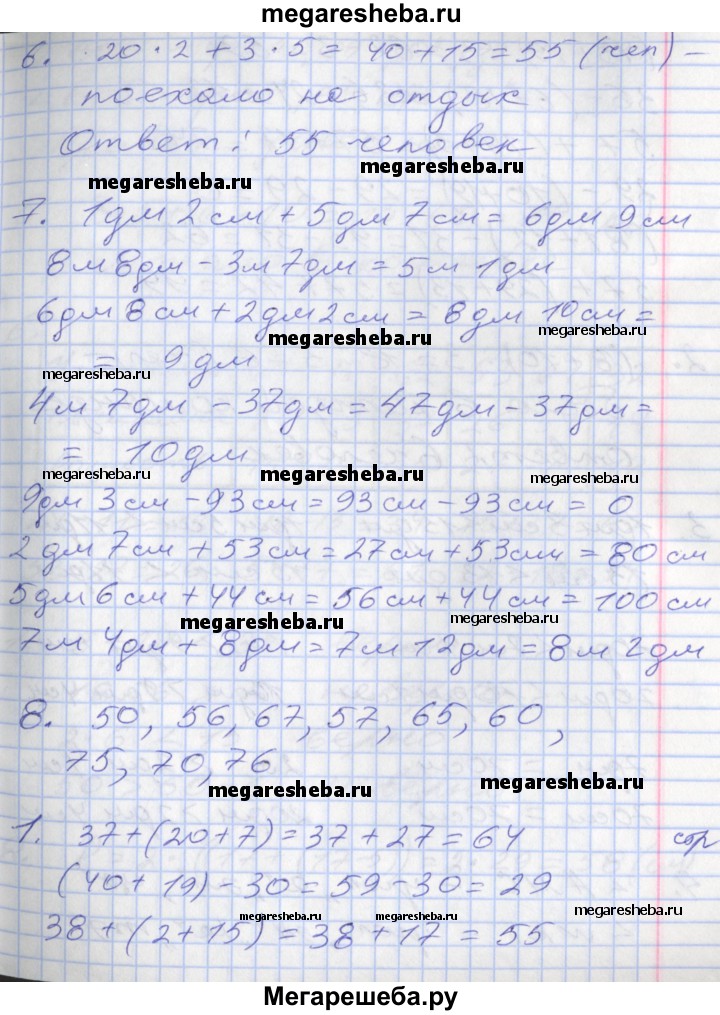 megaresheba.ru
6. 20 · 2 + 3 · 5 = 40 + 15 = 55 (чел) –
поехало на отдых.
Ответ: 55 человек
megaresheba.ru
megaresheba.ru
7. 1дм 2см + 5дм 7см = 6дм 9см
8м 8дм – 3м 7дм = 5м 1дм
6дм 8см + 2дм 2см = 8дм 10см =
megaresheba.ru
megaresheba.ru
= 9дм
megaresheba.ru
4м 7дм – 37дм = 47дм – 37дм =
= 10дм
megaresheba.ru
megaresheba.ru
megaresheba.ru
9дм 3см – 93см = 93см – 93см = 0
2дм 7см + 53см = 27см + 53см = 80см
5дм 6см + 44см = 56см + 44см = 100см
megaresheba.ru
megaresheba.ru
7м 4дм + 8дм = 7м 12дм = 8м 2дм
8. 50, 56, 67, 57, 65, 60,
75, 70, 76
megaresheba.ru
megaresheba.ru
1. 37 + (20 + 7) = 37 + 27 = 64 стр
(40 + 19) – 30 = 59 – 30 = 29
megaresheba.ru
megaresheba.ru
megaresheba.ru
38 + (2 + 15) = 38 + 17 = 55
Мегарешеба.ру